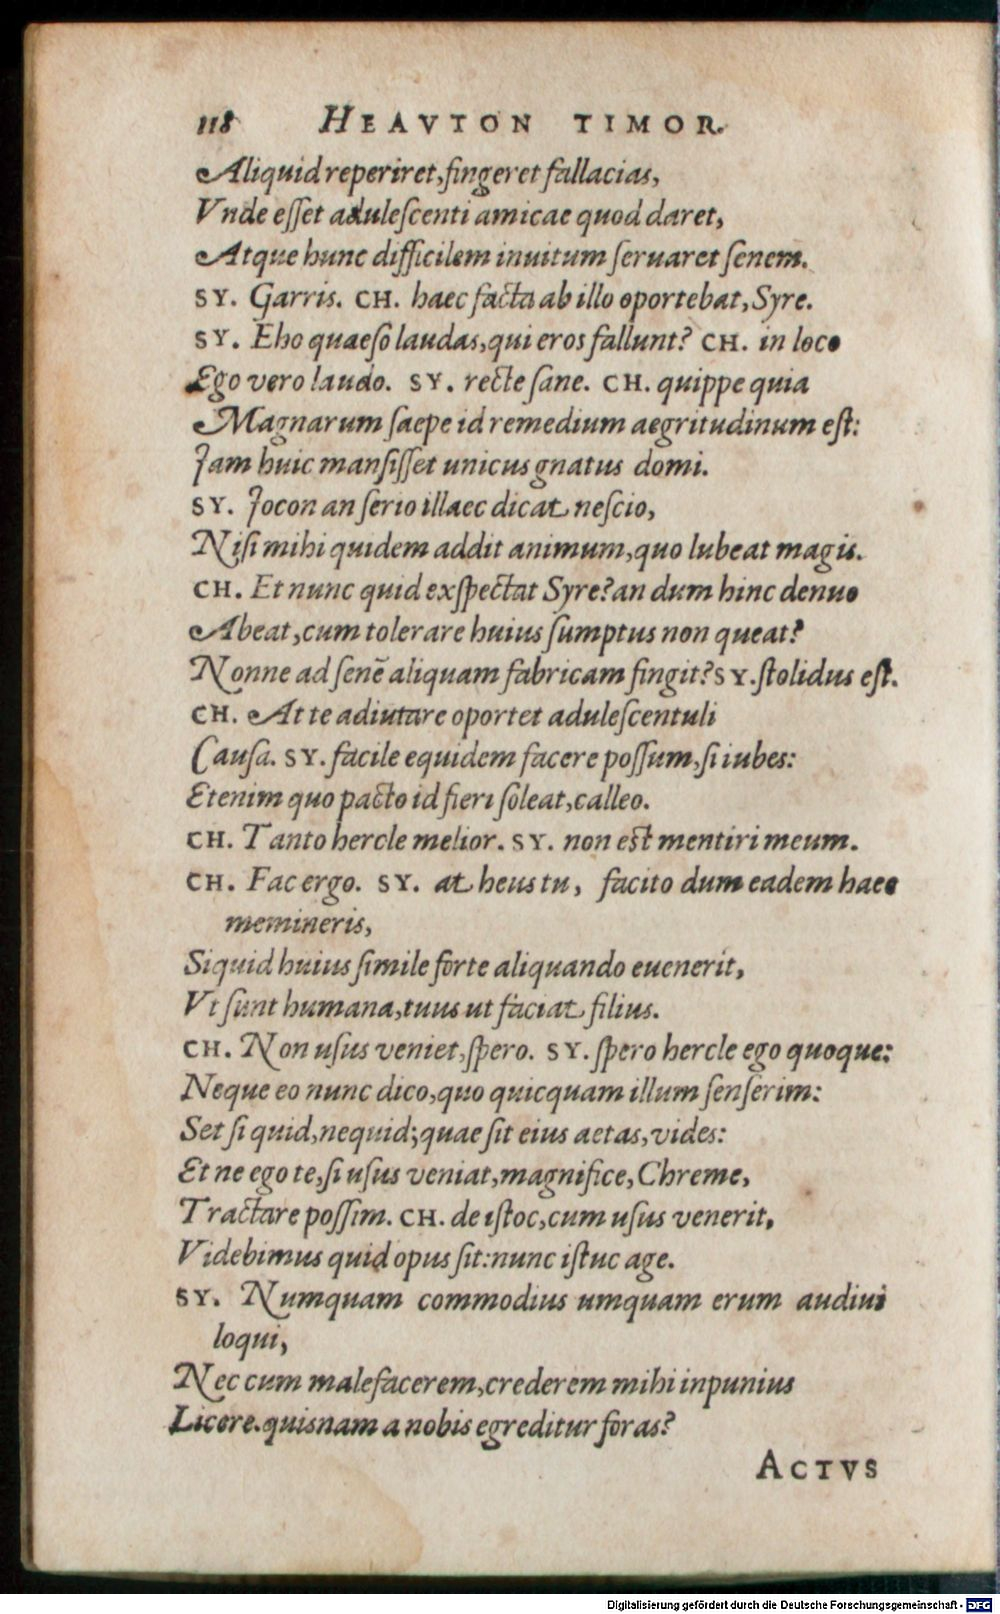 118 HEAVTON TIMOR.
Aliquid reperiret, fingeret fallacias,
Vnde eſſet aduleſcenti amicae quod daret,
Atque hunc difficilem inuitum ſeruaret ſenem.
SY. Garris. CH. haec facta ab illo oportebat, Syre.
SY. Eho quaeſo laudas, qui eros fallunt? CH. in loco
Ego vero laudo. SY. recte ſane. CH. quippe quia
Magnarum ſaepe id remedium aegritudinum eſt:
Jam huic manſiſſet unicus gnatus domi.
SY. Jocon an ſerio illaec dicat neſcio,
Niſi mihi quidem addit animum, quo lubeat magis.
CH. Et nunc quid exſpectat Syre? an dum hinc denuo
Abeat, cum tolerare huius ſumptus non queat?
Nonne ad ſenē aliquam fabricam fingit? SY. ſtolidus eſt.
CH. At te adiutare oportet aduleſcentuli
Cauſa. SY. facile equidem facere poſſum, ſi iubes:
Etenim quo pacto id fieri ſoleat, calleo.
CH. Tanto hercle melior. SY. non eſt mentiri meum.
CH. Fac ergo. SY. at heus tu, facito dum eadem haec
memineris,
Siquid huius ſimile forte aliquando euenerit,
Vt ſunt humana, tuus ut faciat filius.
CH. Non uſus veniet, ſpero. SY. ſpero hercle ego quoque:
Neque eo nunc dico, quo quicquam illum ſenſerim:
Set ſi quid, nequid; quae ſit eius aetas, vides:
Et ne ego te, ſi uſus veniat, magnifice, Chreme,
Tractare poſſim. CH. de iſtoc, cum uſus venerit,
Videbimus quid opus ſit: nunc iſtuc age.
SY. Numquam commodius umquam erum audiui
loqui,
Nec cum malefacerem, crederem mihi inpunius
Licere. quisnam a nobis egreditur foras?
ACTVS
Digitalisierung gefördert durch die Deutsche Forschungsgemeinschaft - DFG